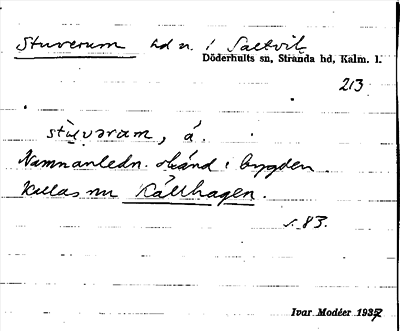 Stuverum hd n. i Saltvik
Döderhults sn, Stranda hd, Kalm. l.
213
stùvəram, á.
Namnanledn. okänd i bygden
Kallas nu Källhagen.
s. 83.
Ivar Modéer 1932